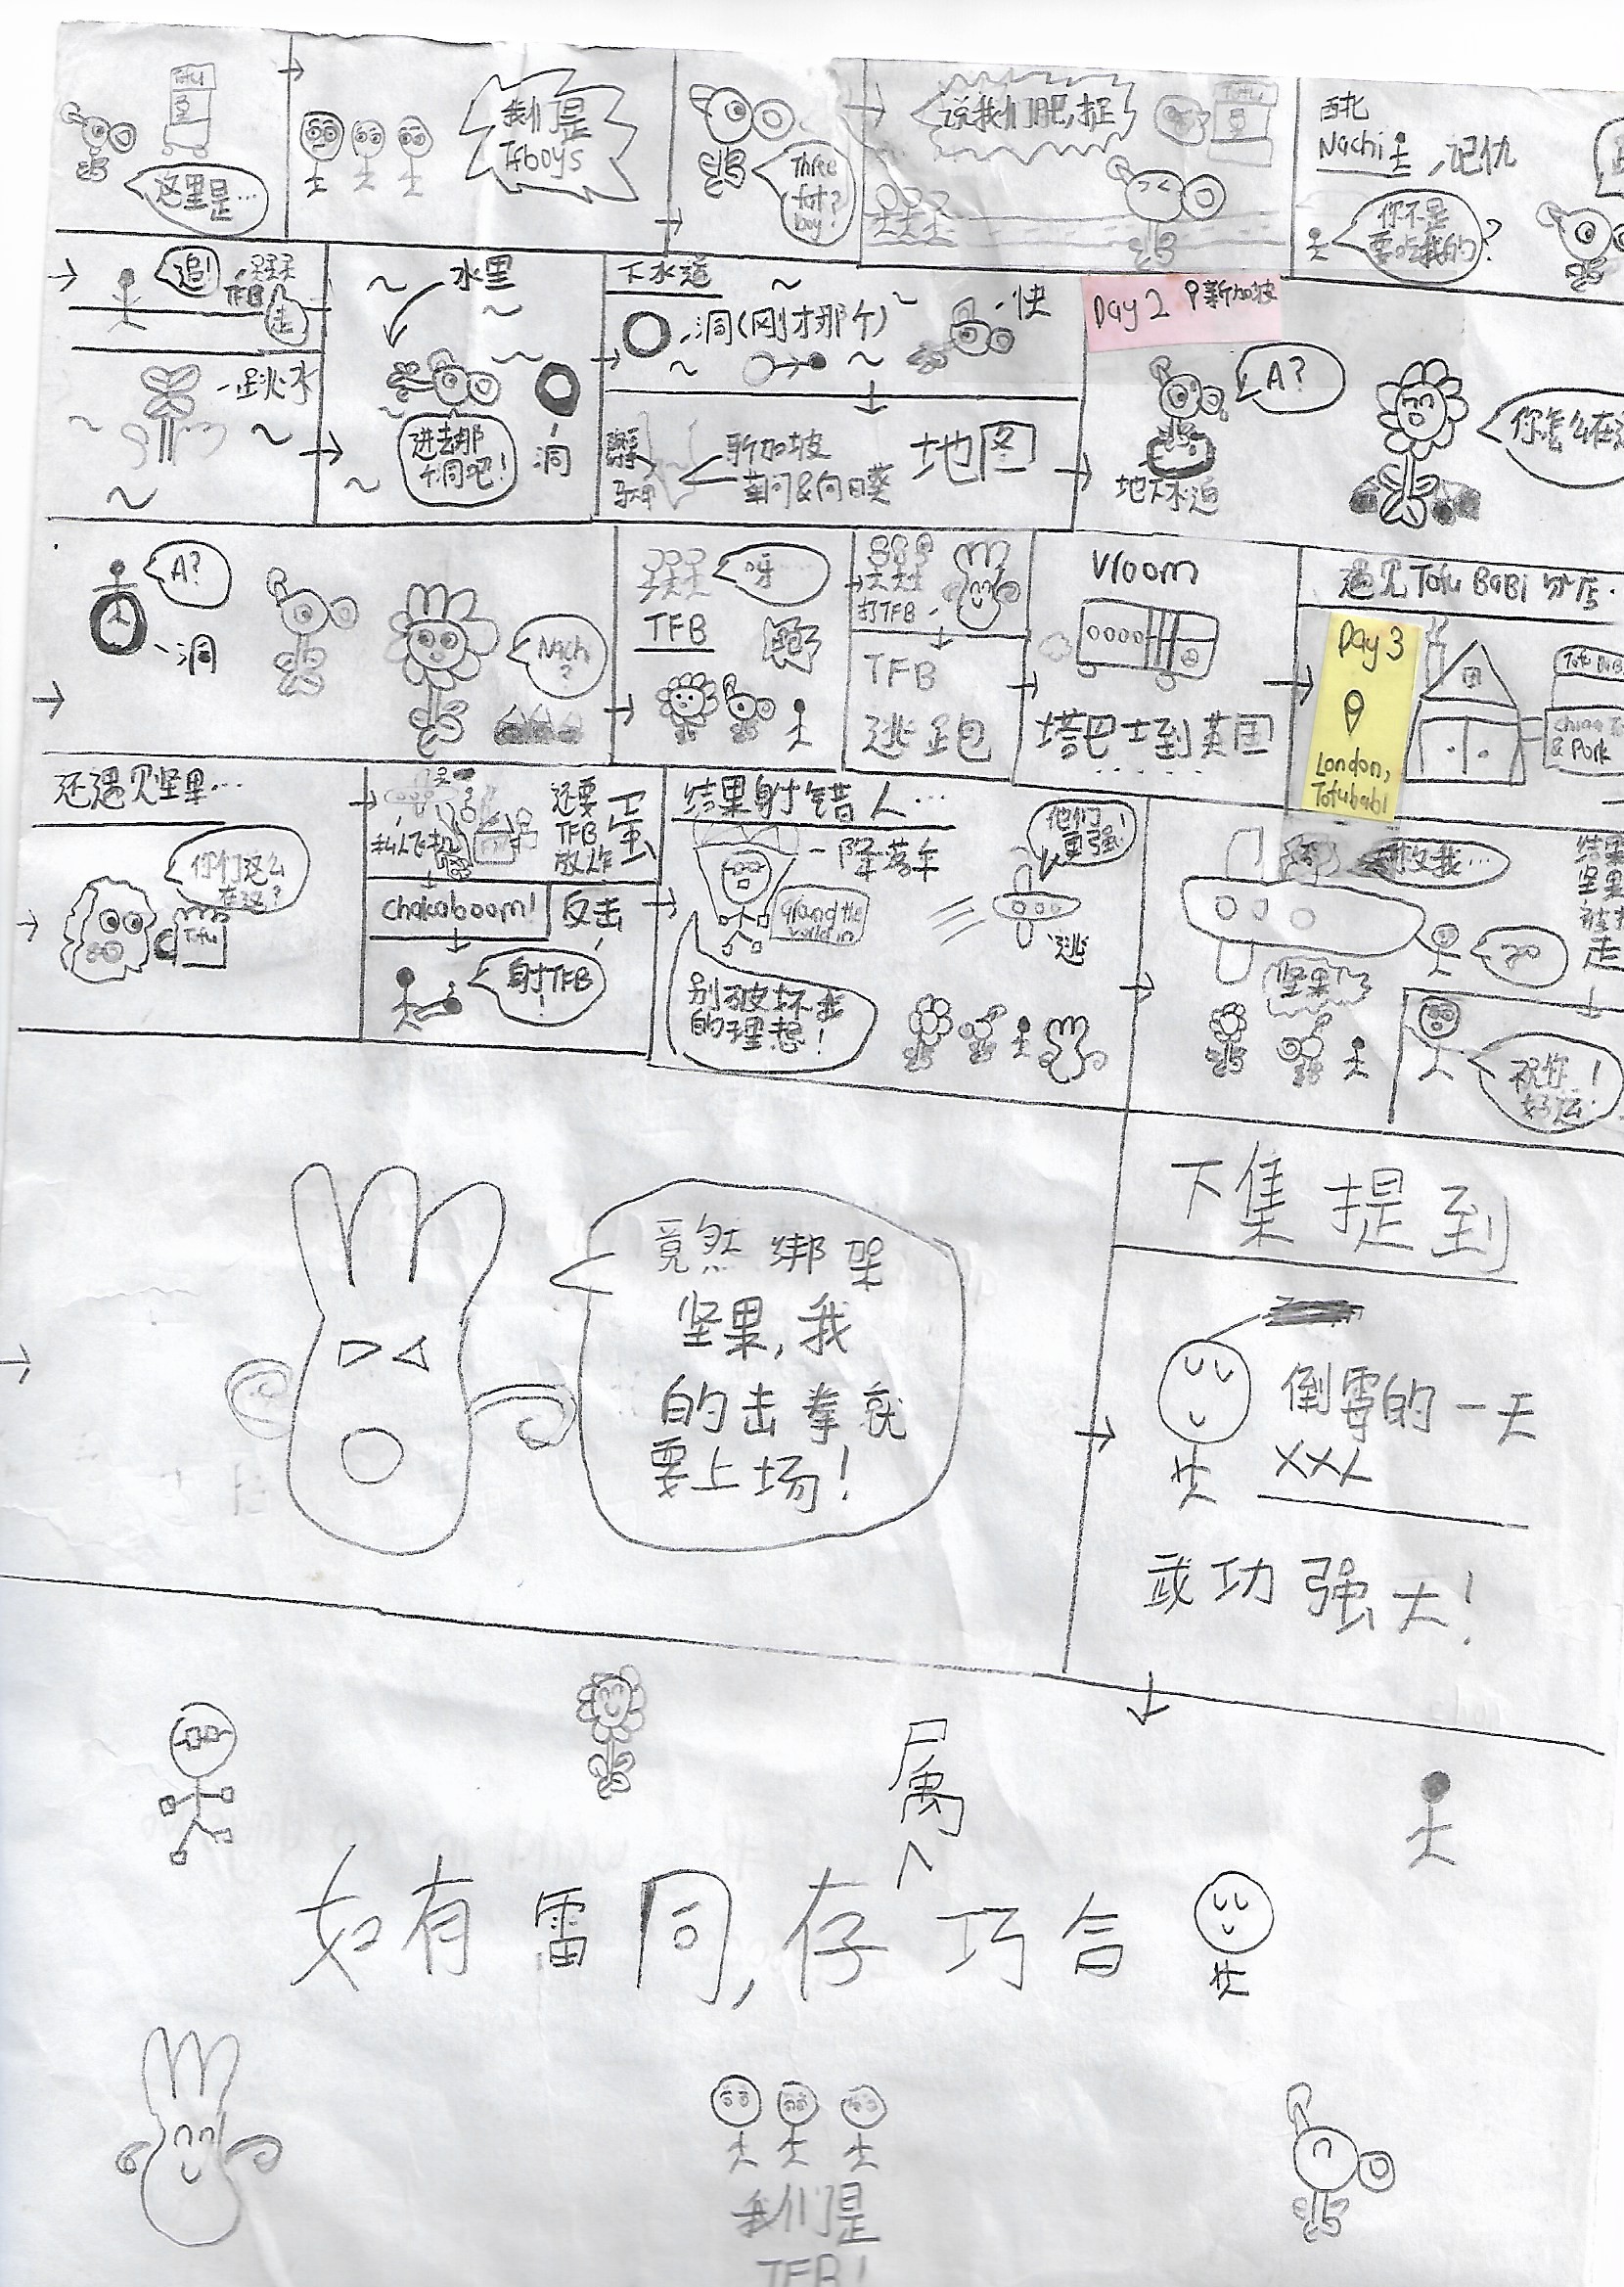 Tofu
豆
这里是…
我们是
Tfboys
Three
fat?
boy?
说我们肥,捉
Tofu
豆
西北
Nachi
记仇
你不是
要吃我的?
追!
TFB
走
跳水
水里
进去那
个洞吧!
洞
下水道
洞(刚才那个)
快
新加坡
地图
Day 2 新加坡
A?
地下水道
你怎么在
A?
洞
Nachi
?
呀
TFB
跑
打TFB
TFB
逃跑
Vroom
搭巴士到英国
遇见Tofu BaBi分店.
Day 3
London,
Tofubabi
& Pork
还遇见坚果…
你们怎么
在这?
Tofu
还要
TFB
放炸
蛋
chakaboom!
反击
射TFB
!
结果射错人…
降落伞
Grand the
world in
别破坏我
的理想!
他们
更强!
逃
救我…
go
坚果!
结果
坚果
被
走
祝你!
好运!
竟然绑架
坚果,我
的击拳就
要上场!
下集提到
倒霉的一天
XXX
或功强大!
属
如有雷同,存巧合
我们是
TFB!